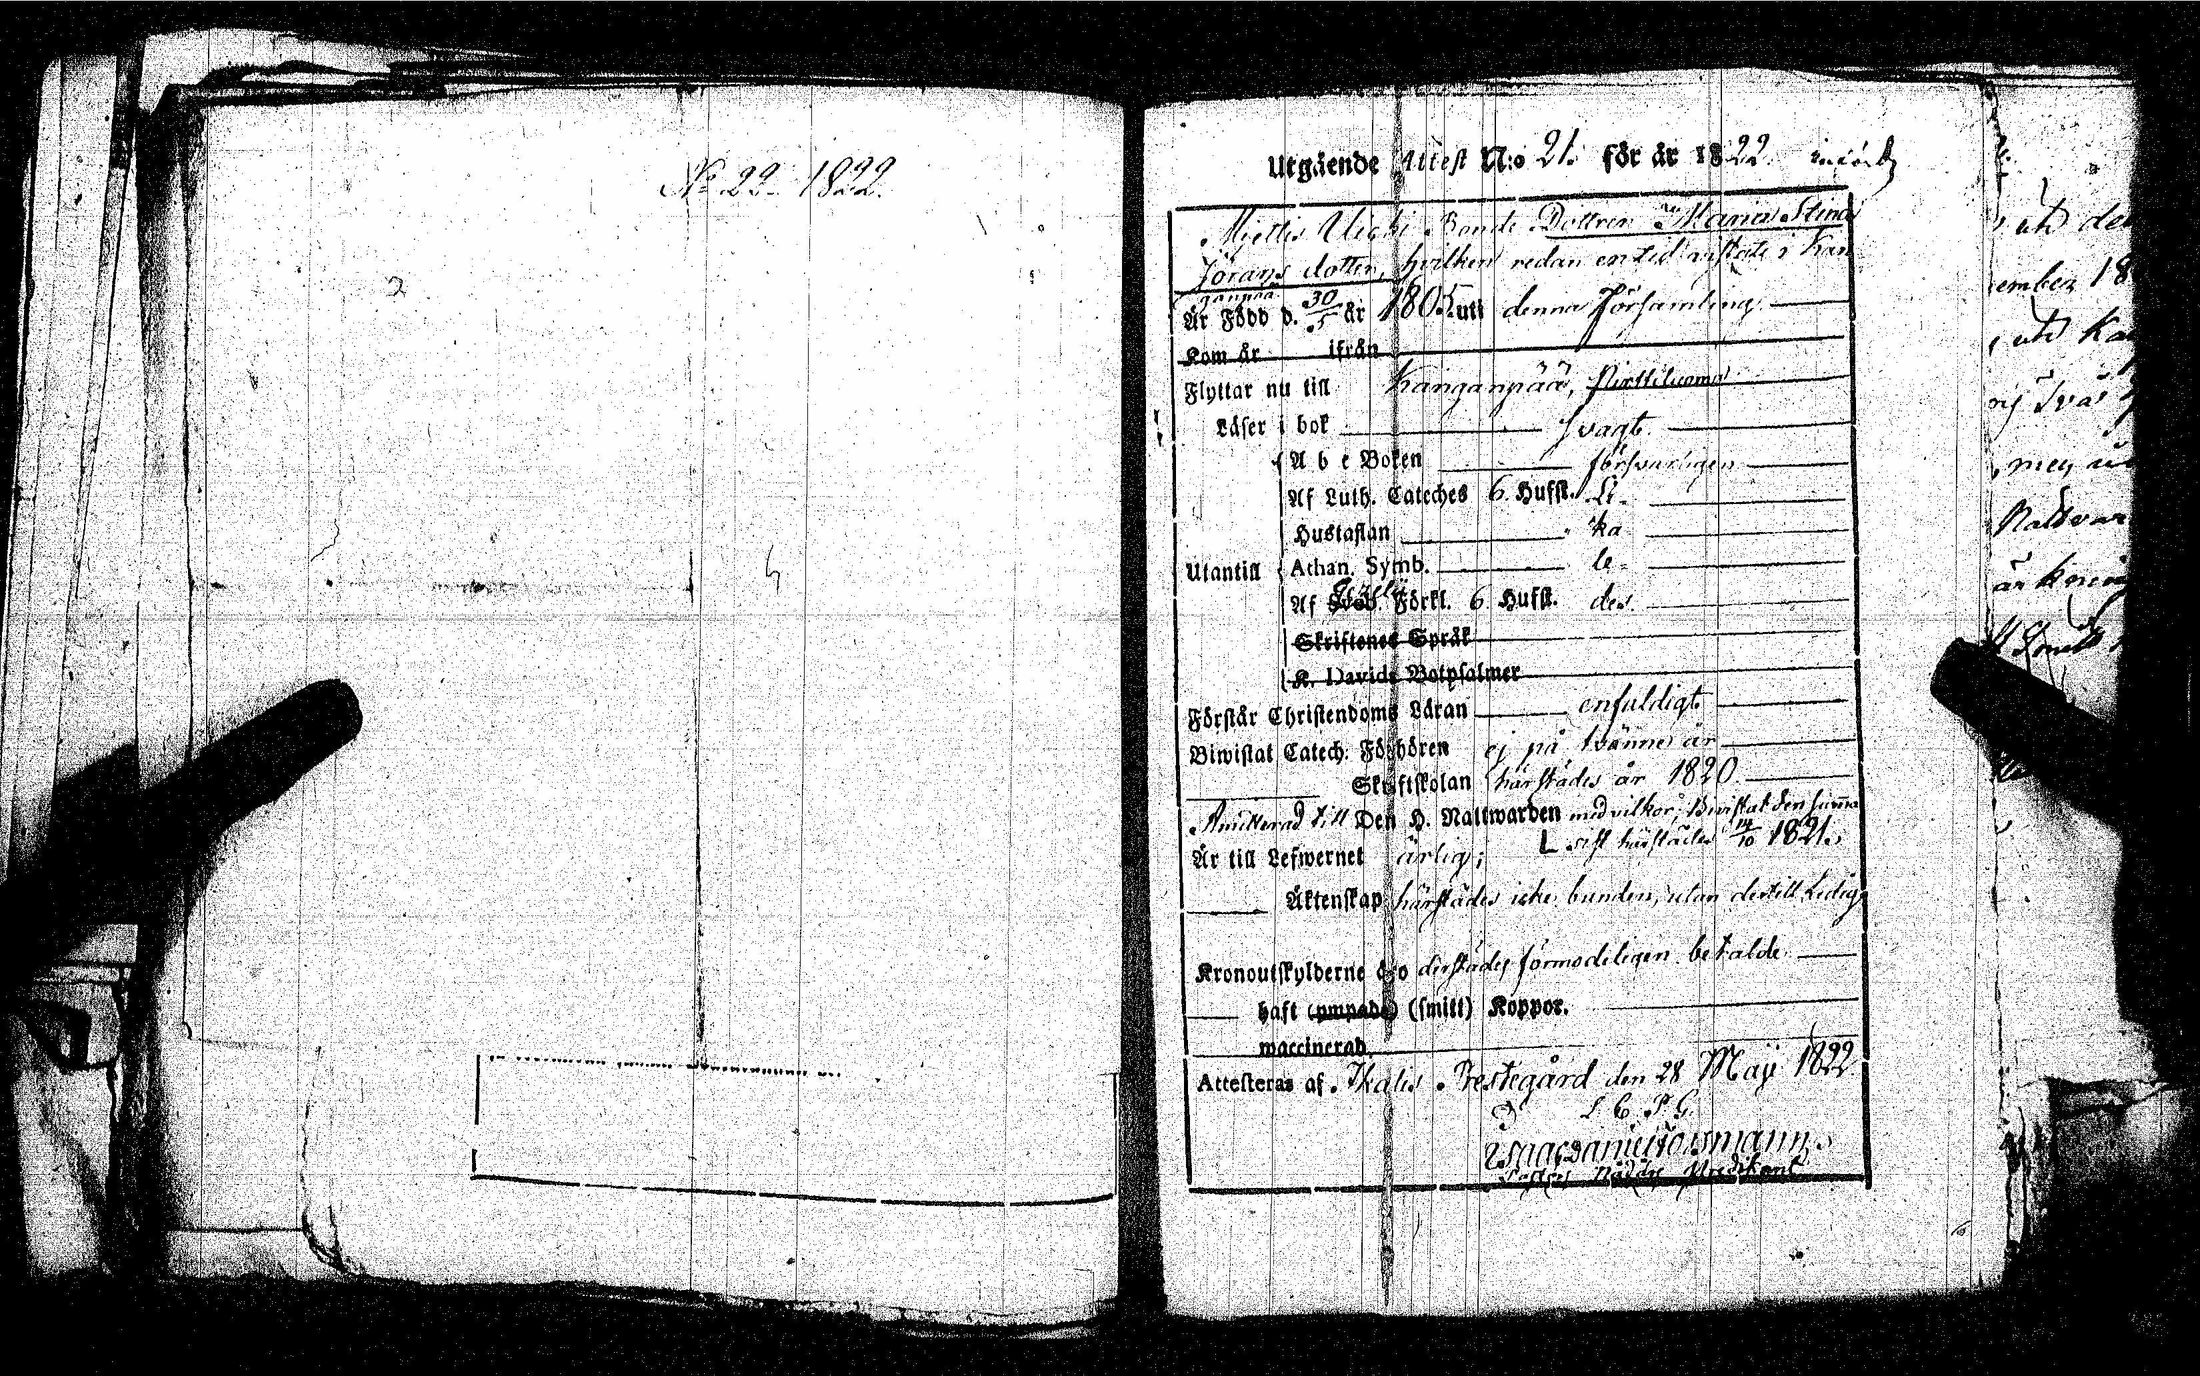 No 22 1822.
Utgående Attest N:o 21. för år 1822.
Miettis Uichi Bonde Dottren Maria Stina
Jörans dotter, hvilken redan en tid vistats i Kan
ganpää
Är Född d. 30/5 år 1805 uti denna Församling
Kom år ifrån
Flyttar nu till Kanganpää,
Läser i bok svagt.
A b c Boken försvarligen
Af Luth. Cateches 6. Hufst. Li-
Hustaflan ka-
Utantill Athan. Symb. le-
Af Förkl. 6 Hufst. des
Skriftenes Språk
K. Davids Botpsalmer
Förstår Christendoms Läran enfaldigt
Biwistat Catech. Förhören ej på tvänne år
Skriftskolan härstädes år 1820.
Admitterad till Den H. Nattwarden med vilkor; Bivistat den samma
sist härstädes 14/10 1821.
Är till Lefwernet ärlig;
Äktenskap härstädes icke bunden, utan dertill Ledig
Kronoutskylderne äro derstädes förmodeligen betalde.
haft (ympade) (smitt) Koppor.
waccinerad.
Attesteras af Ikalis Prestegård den 28 Maji 1822
L C P G
ut den
ember 18
, uti Ka
Nattvar